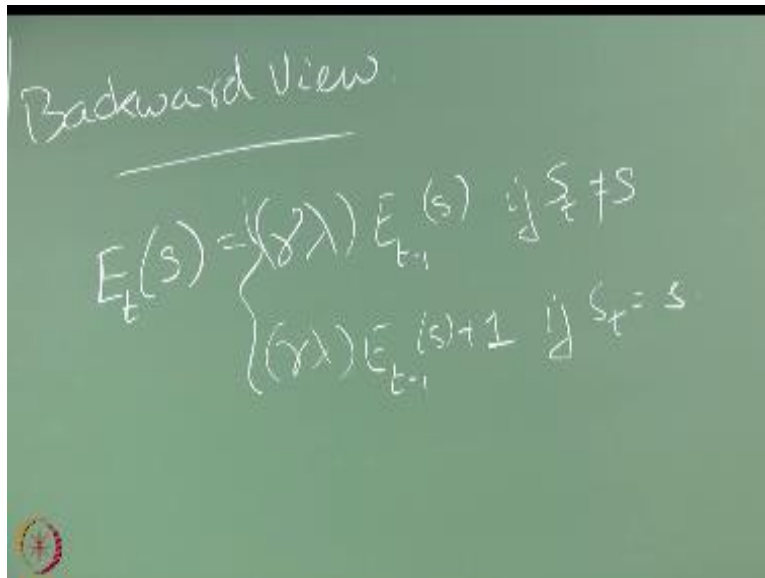 Backward View.
E_t(s) = { (γλ) E_{t-1}(s) if S_t ≠ S
(γλ) E_{t-1}(s) + 1 if S_t = s